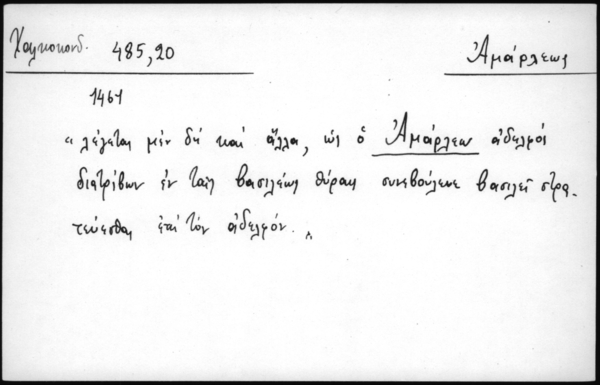 Χαλκοκονδ. 485,20
Ἀμάρλεως
1461
" λέγεται μὲν δὴ καὶ ἄλλα, ὡς ὁ Ἀμάρλεω ἀδελφὸς
διατρίβων ἐν ταῖς βασιλέως θύραις συνεβούλευε βασιλεῖ στρα-
τεύεσθαι ἐπὶ τὸν ἀδελφόν. "